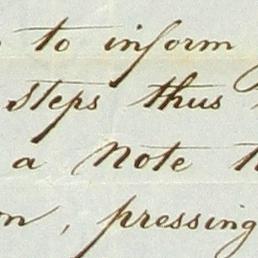 to inform
steps thus
a Note
, pressing